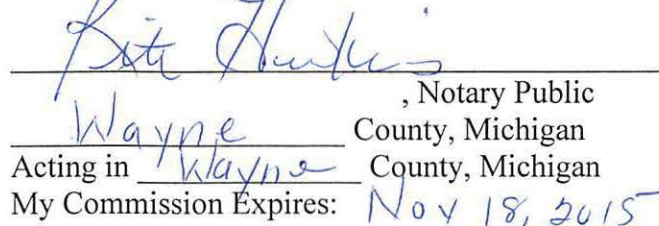 , Notary Public
Wayne County, Michigan
Acting in Wayne County, Michigan
My Commission Expires: Nov 18, 2015